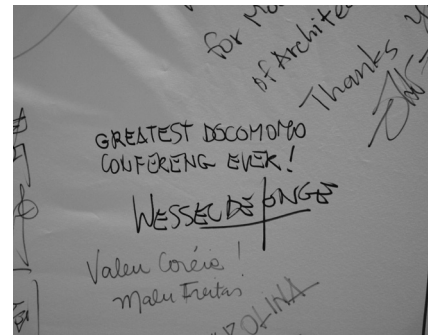 for Mo
of Architec
Thanks
GREATEST DOCOMOMO
CONFERENG EVER!
WESSEL DE JONGE
Valeu Coréia!
Malu Freitas
ROLINA